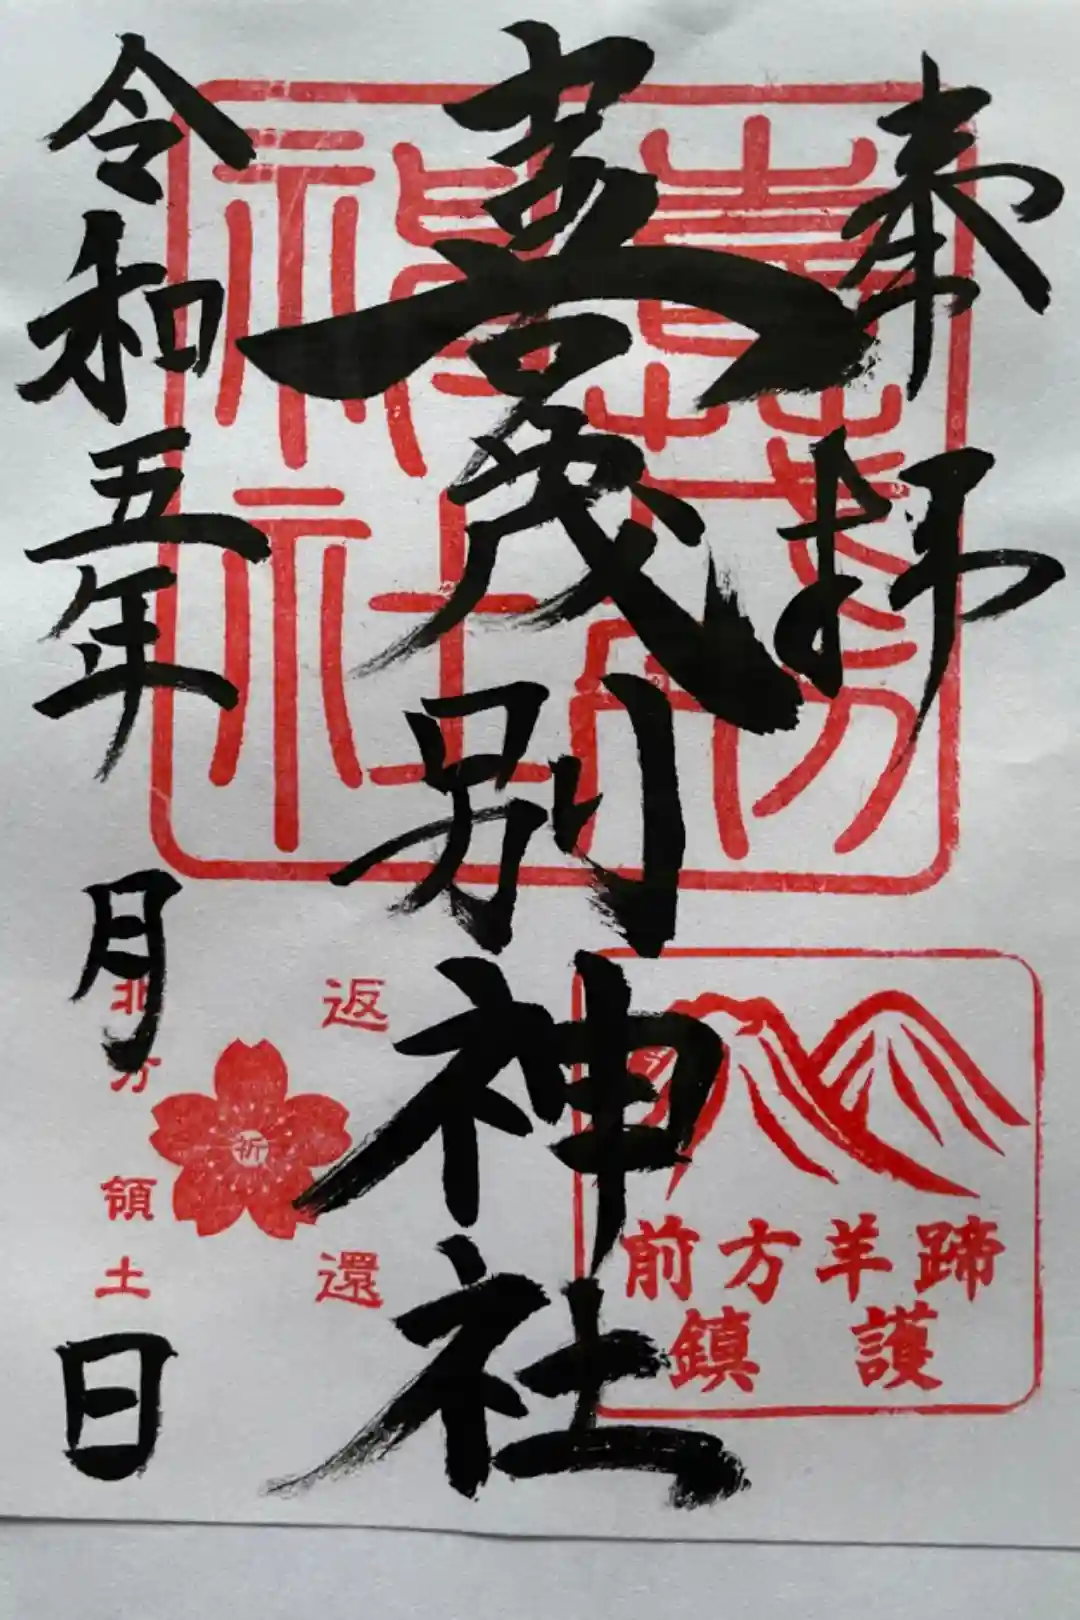 奉拝
喜茂別神社
令和五年 月 日
喜茂別
神社
蹄羊方前
護鎮
北方領土
返還
祈